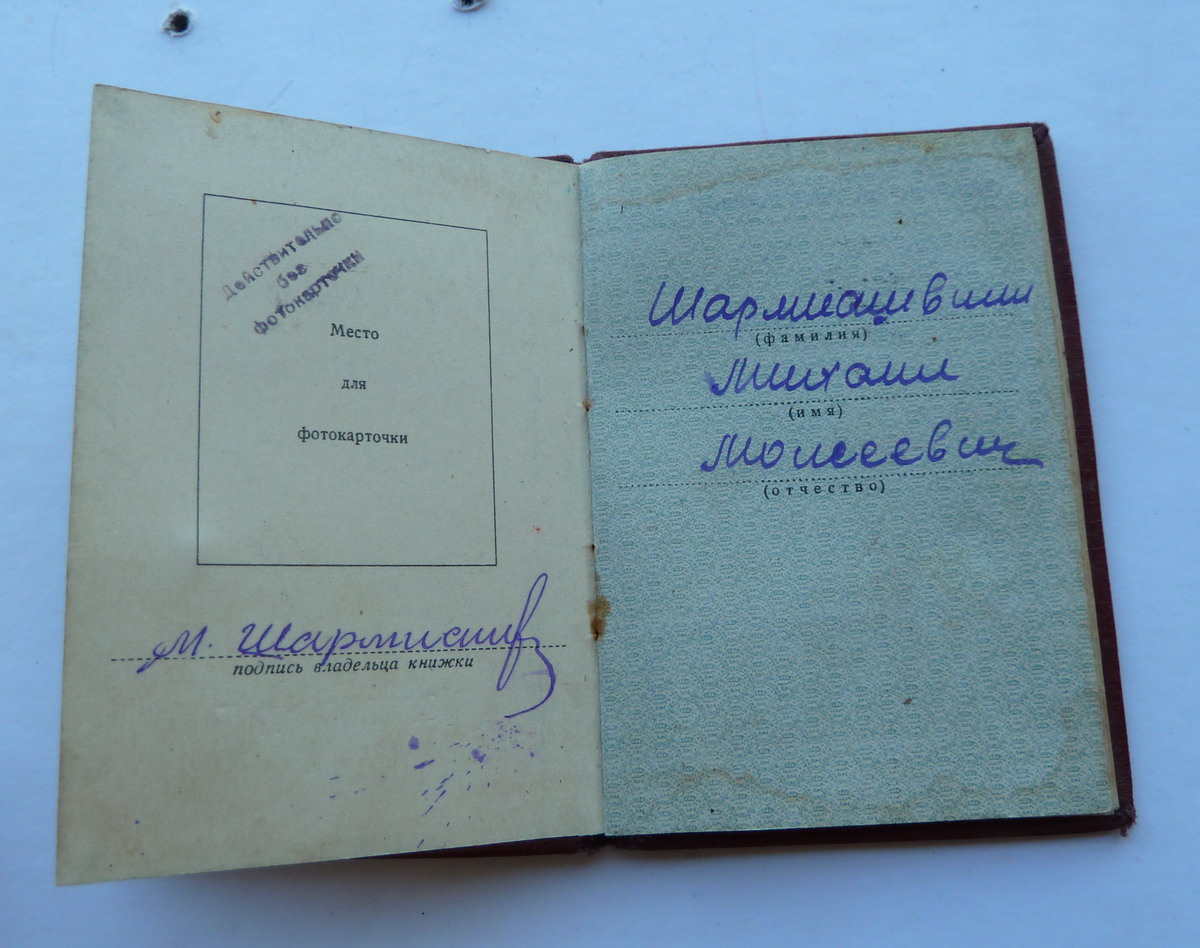 Действительно
без
фотокарточки
Место
для
фотокарточки
М. Шармиашв
подпись владельца книжки
Шармиашвили
(фамилия)
Михаил
(имя)
Моисеевич
(отчество)